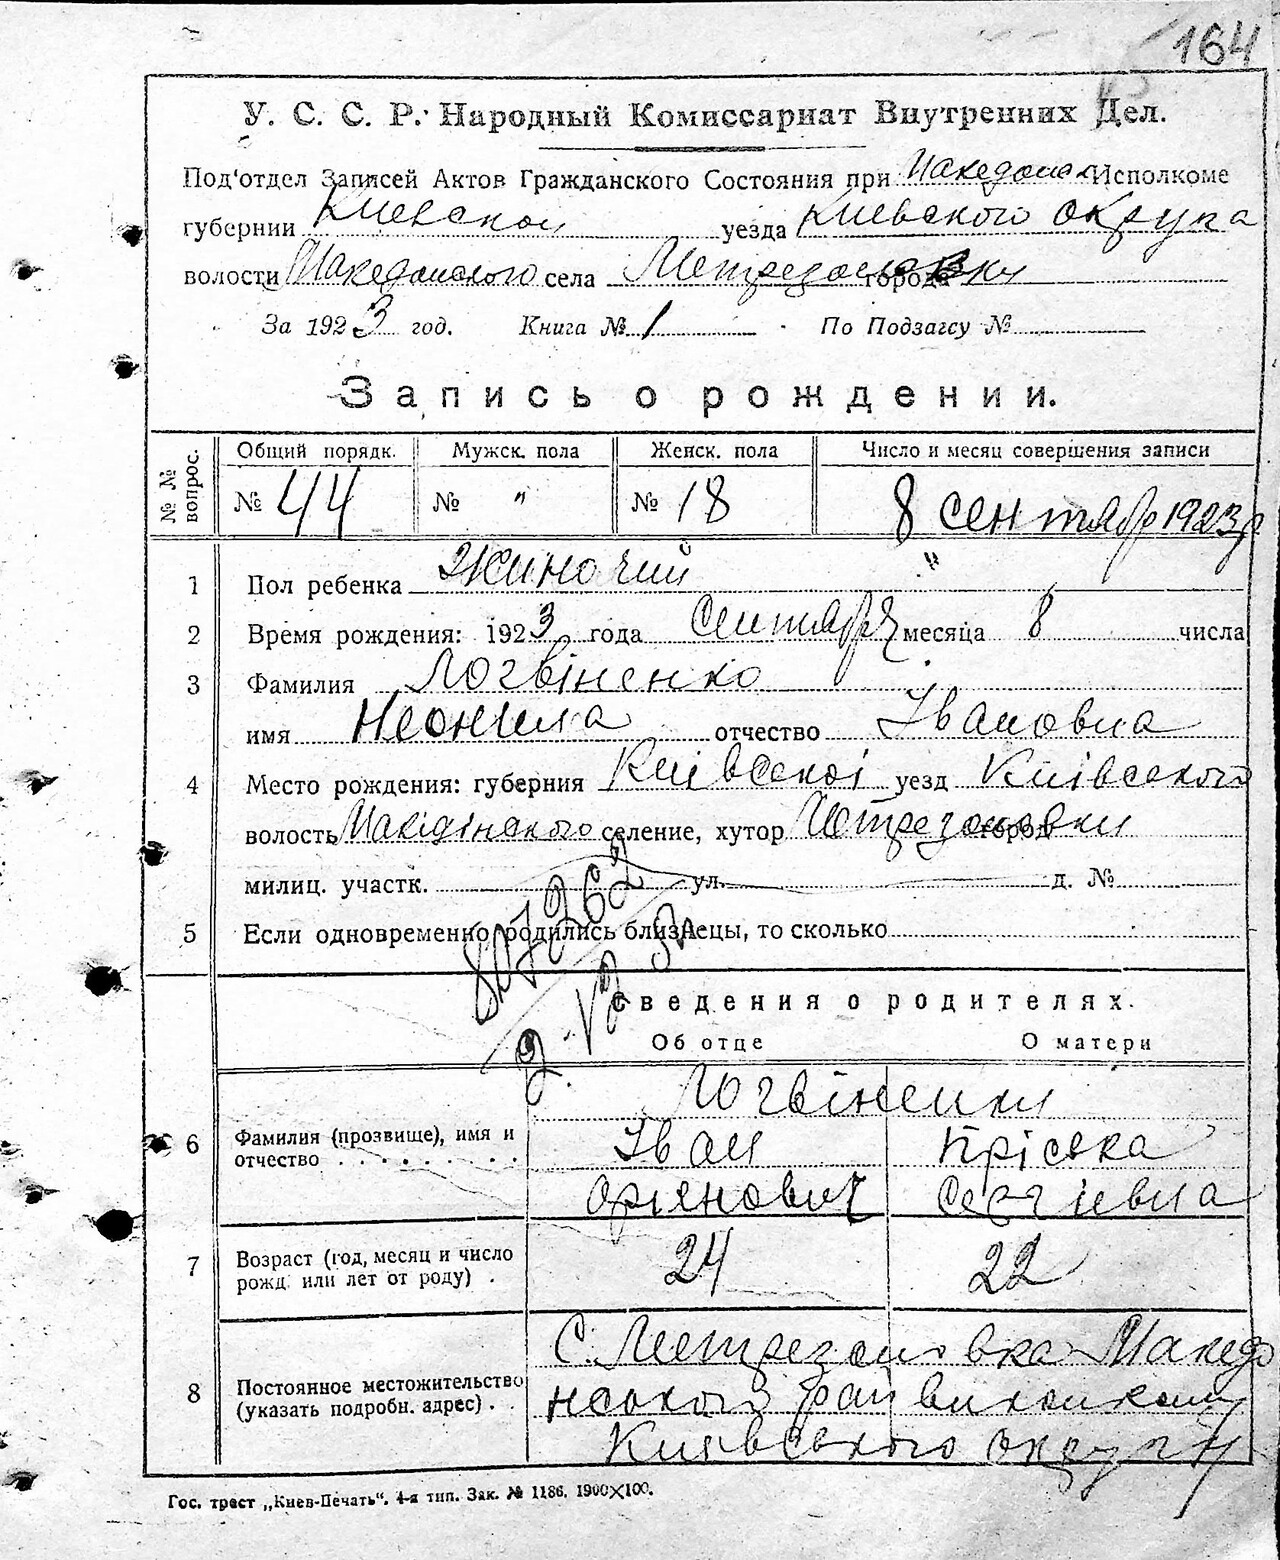 164
У. С. С. Р. Народный Комиссариат Внутренних Дел.
Под'отдел Записей Актов Гражданского Состояния при Македонск Исполкоме
губернии Киевской уезда Киевского округа
волости Македонского села города
За 1923 год. Книга № 1 По Подзагсу №
Запись о рождении.
№№ вопрос. Общий порядк. Мужск. пола Женск. пола Число и месяц совершения записи
№ 44 № " № 18 8 сентября 1923 р
1 Пол ребенка жиночий "
2 Время рождения: 1923 года Сентября месяца 8 числа
3 Фамилия Логвіненко
имя Неонила отчество Івановна
4 Место рождения: губерния Київської уезд Київського
волость Македінського селение, хутор город
милиц. участк. ул. д. №
5 Если одновременно родились близнецы, то сколько
Сведения о родителях.
Об отце О матери
Логвіненки
6 Фамилия (прозвище), имя и Іван Пріська
отчество Сергіевна
7 Возраст (год, месяц и число 24 22
рожд. или лет от роду)
С. Македо
8 Постоянное местожительство нського рай виконкому
(указать подробн. адрес)
Київського округу
Гос. трест „Киев-Печать“. 4-я тип. Зак. № 1186. 1900×100.